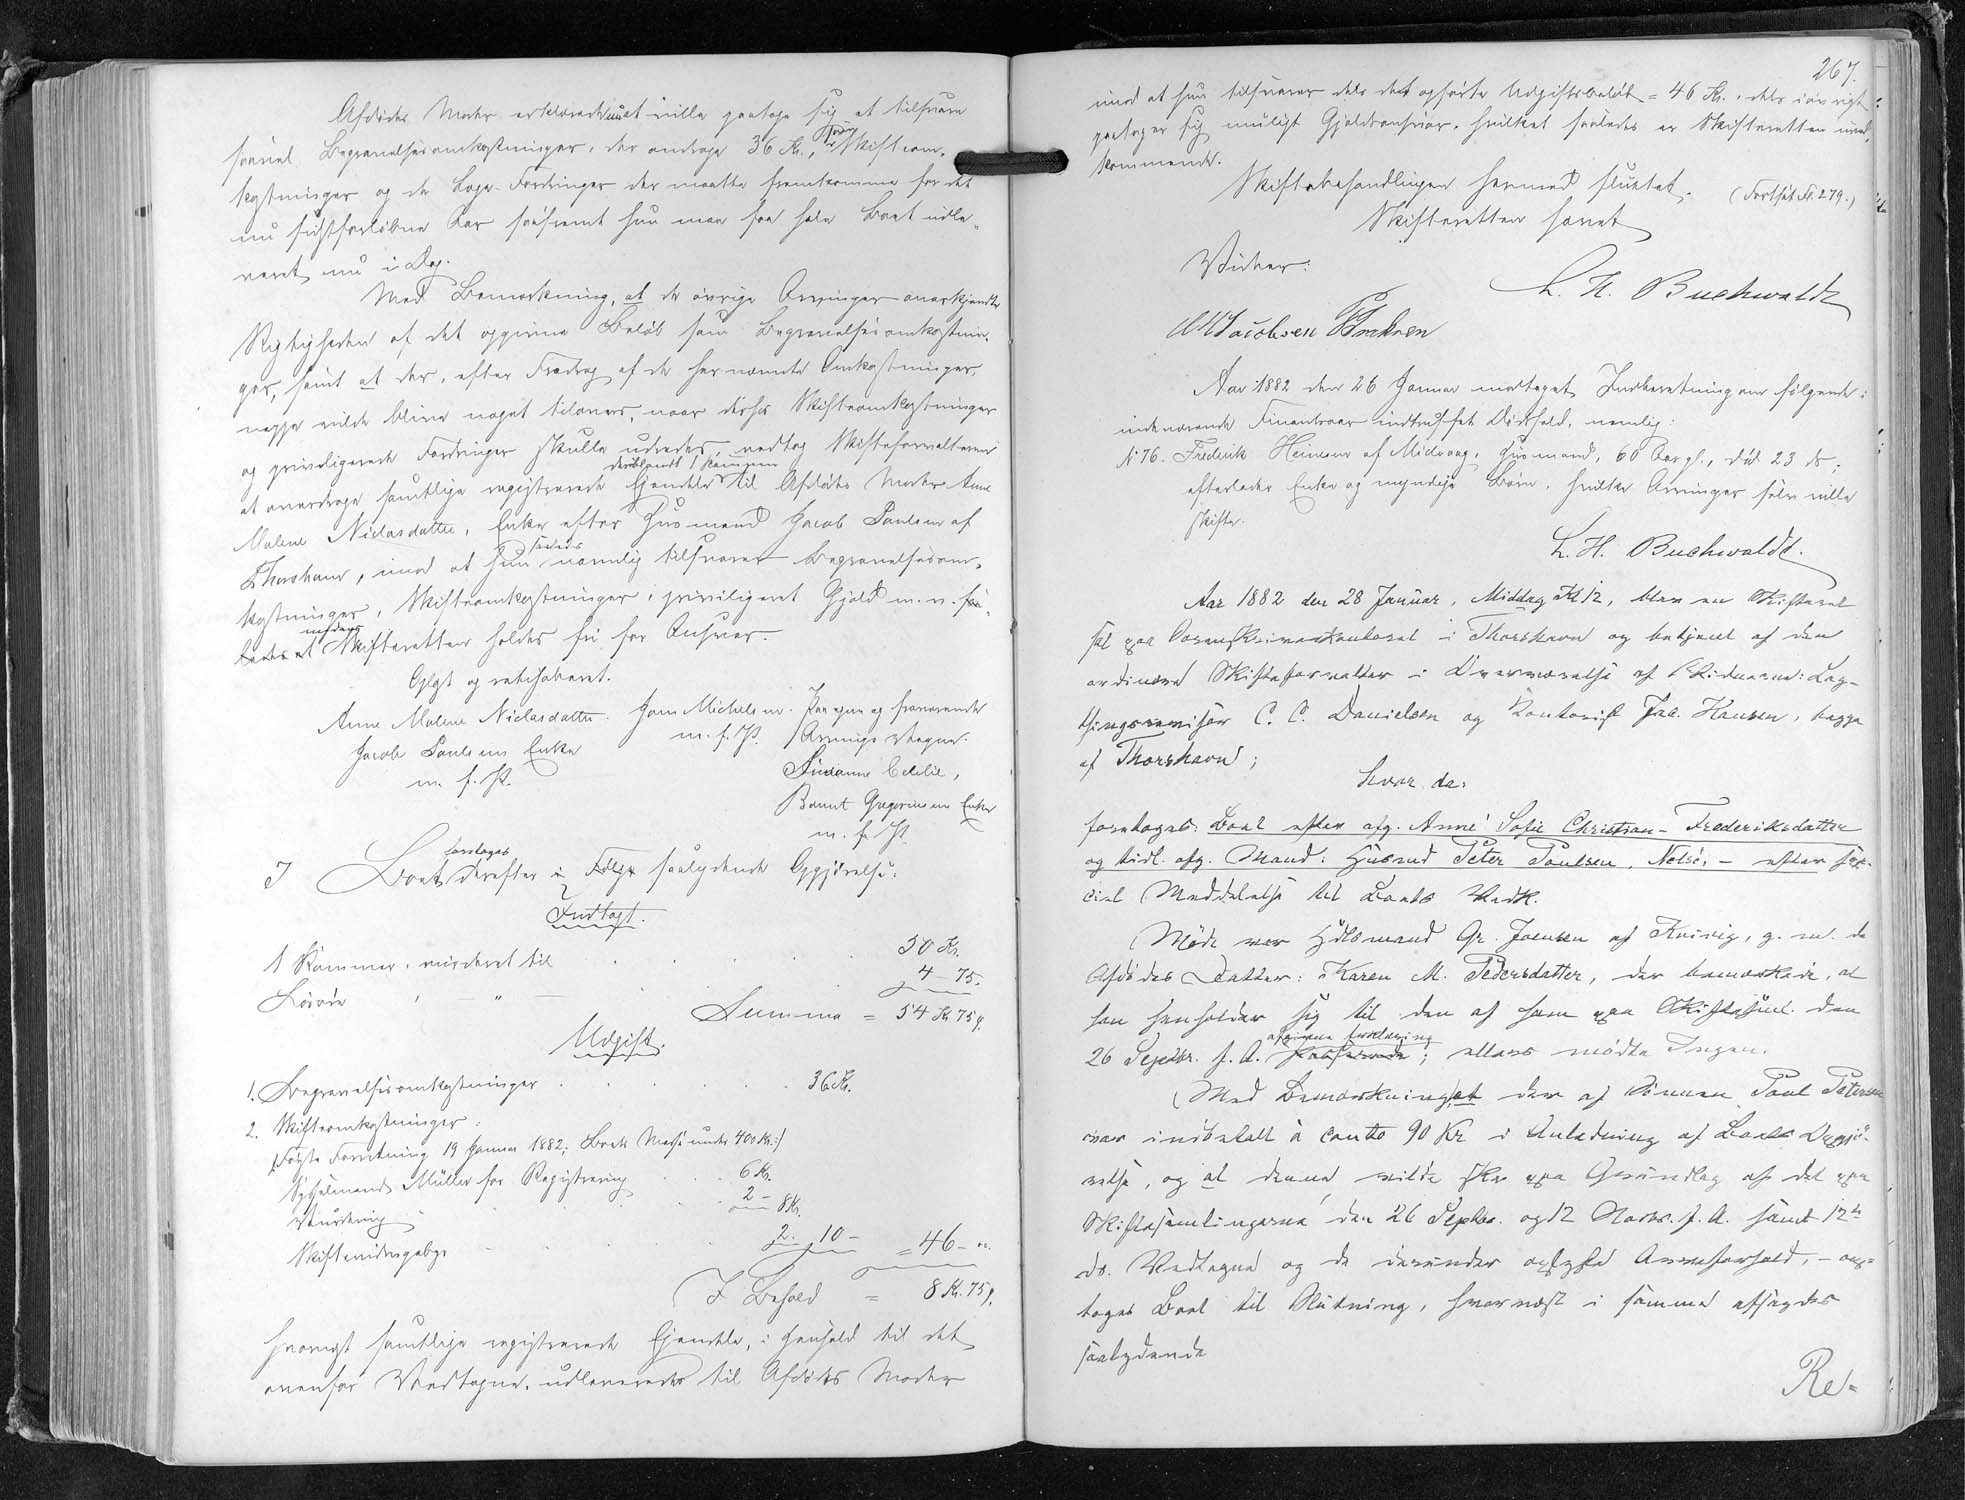 Afdødes Moder erklærede at ville paatage sig at tilsvare
saavel Begravelsesomkostninger, der androge 36 Kr., Skifteom-
kostninger og de Lage-Fordringer der maatte fremkomme for det
nu sidstforløbne Aar saafremt hun maa faa hele Boet udle-
veret nu i Dag.
Med Bemærkning, at de øvrige Arvinger anerkjendte
Rigtigheden af det opgivne Beløb som Begravelsesomkostnin-
ger, samt at der, efter Fradrag af de her nævnte Omkostninger,
neppe vilde blive noget tilovers, naar disse Skifteomkostninger
og priviligerede Fordringer skulle udredes, vedtog Skifteforvalteren
at overdrage samtlige registrerede Ejendele deriblandt 1 Kammer til Afdødes Moder Anne
Malene Niclasdatter, Enke efter Husmand Jacob Poulsen af
Thorshavn, imod at hun saaledes nemlig tilsvarer Begravelsesom-
kostninger, Skifteomkostninger, priviligeret Gjæld m. v.
at Skifteretten holdes fri for Ansvar.
Oplæst og ratihaberet.
Anne Malene Niclasdatter. Joen Michelsen. Paa egne og fraværende
Jacob Poulsens Enke m. f. P. Arvinges Vegne:
m. f. P. Susanne Cecilie,
Bernt Gregersens Enke
m. f. P.
I Boet foretoges derefter saalydende Opgjørelse:
Indtægt.
1 Kammer, vurderet til 50 Kr.
Løsøre — " — 4 - 75.
Summa = 54 Kr 75 Ø.
Udgift.
1. Begravelsesomkostninger 36 Kr.
2. Skifteomkostninger:
Forretning 19 Januar 1882; Boets Masse under 400 Kr.
Sysselmand Müller for Registrering 6 Kr.
Vurdering 2 - 8 Kr.
Skiftevidnegebyr 2. 10 - = 46 - ".
I Behold = 8 Kr. 75 Ø.
hvorefter samtlige registrerede Ejendele, i Henhold til det
ovenfor Vedtagne, udleveredes til Afdødes Moder
267.
imod at hun tilsvarer dels det opførte Udgiftsbeløb = 46 Kr., dels iøvrigt
paatager sig muligt Gjældsansvar, hvilket saaledes er Skifteretten uved-
kommende.
Skiftebehandlingen hermed sluttet. (Fortsat Fol. 279.)
Skifteretten hævet
Vidner: L. H. Buchwaldt
Jacobsen
Aar 1882 den 26 Januar modtoges Indberetning om følgende i
indeværende Finantsaar indtruffet Dødsfald, nemlig:
No 76. Frederik Heinesen af Midvaag, Husmand, 60 Aar gl., død 23 ds.;
efterlader Enke og myndige Børn, hvilke Arvinger selv ville
skifte.
L. H. Buchwaldt.
Aar 1882 den 28 Januar, Middag Kl 12, blev en Skifteret
sat paa Sorenskriverkontoret i Thorshavn og betjent af den
ordinære Skifteforvalter i Overværelse af Vidnerne: Lag-
thingsrevisor C. C. Danielsen og Kontorist Jac. Hansen, begge
af Thorshavn;
hvor da:
foretoges: Boet efter afg. Anne Sofie Christian- Frederiksdatter
og tidl. afg. Mand: Husmd Peter Poulsen, Nolsø, - efter spe-
ciel Meddelelse til Boets Vedk.
Mødt var Hdlsmand Gr. Joensen af Kvivig, g. m. de
Afdødes Datter: Karen M. Pedersdatter, der bemærkede, at
han henholder sig til den af ham paa Skiftesaml. den
26 Septbr. f. A. afgivne Forklaring; ellers mødte Ingen.
Med Bemærkning at der af Sønnen Poul Petersen
var indbetalt à conto 90 Kr i Anledning af Boets Opgjø-
relse, og at denne vilde ske paa Grundlag af det paa
Skiftesamlingerne den 26 Septbr. og 12 Novbr. f. A. samt 12te
ds. Vedtagne og de derunder oplyste Arveforhold, - op-
toges Boet til Slutning, hvornæst i samme afsagdes
saalydende
Re-